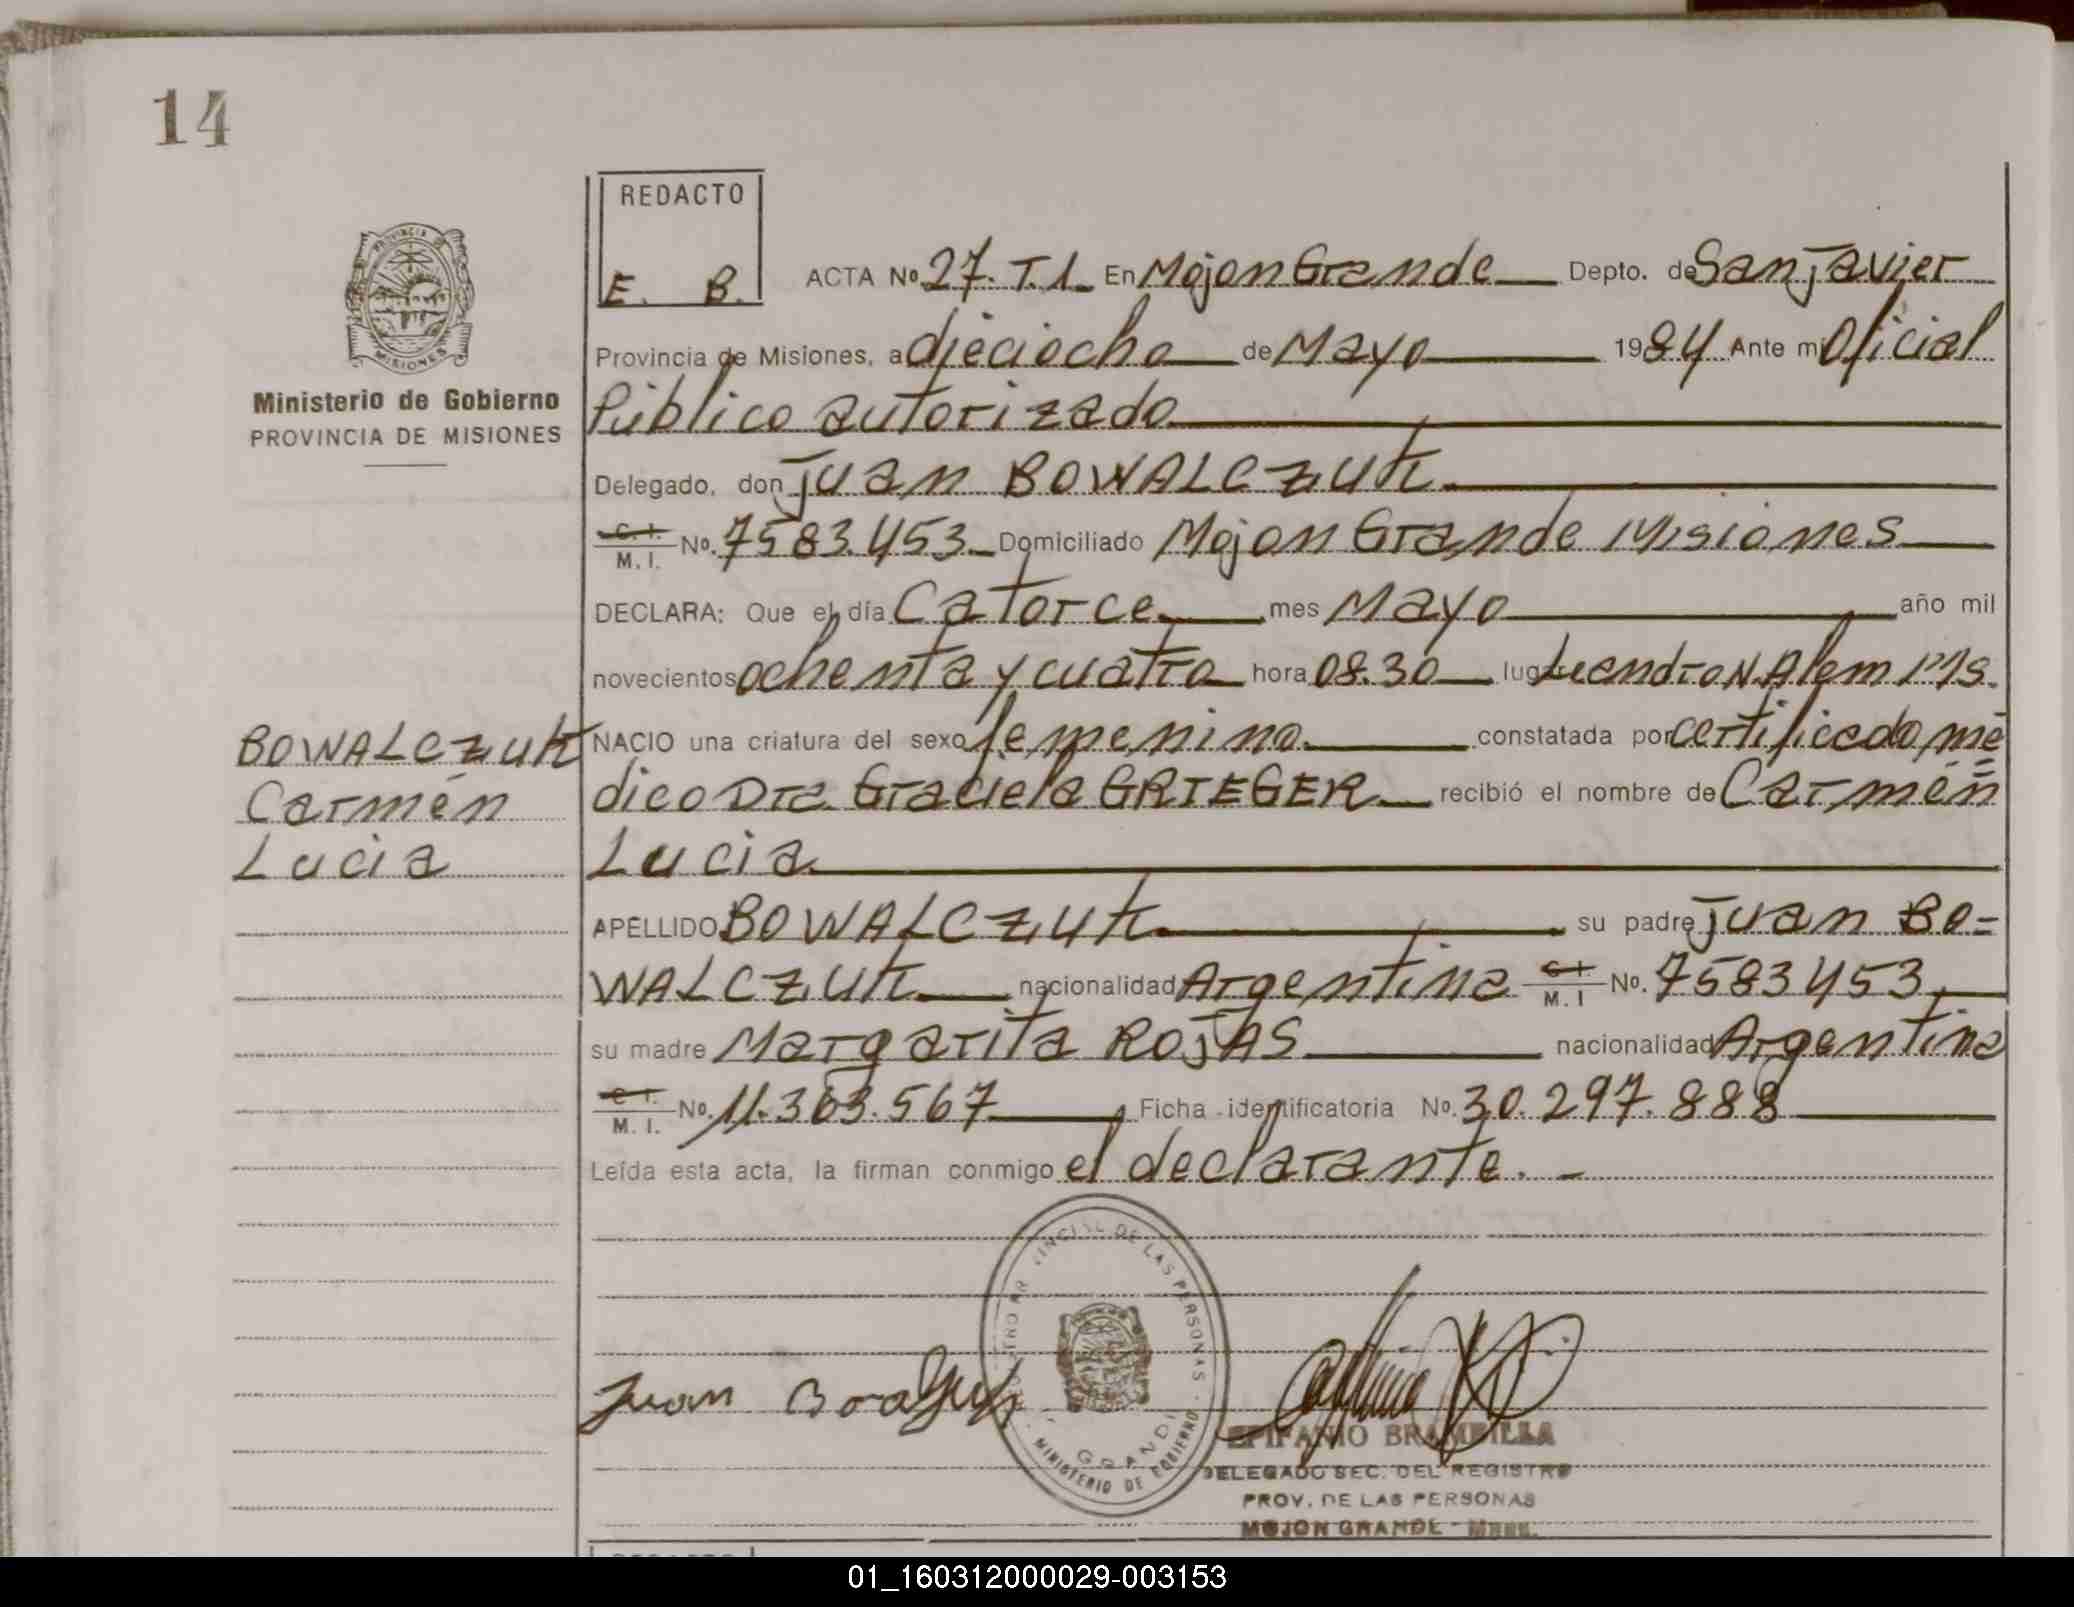 14
REDACTO
E. B.
ACTA No 27. T.1. En Mojon Grande Depto. de San Javier
PROVINCIA DE MISIONES
Provincia de Misiones, a dieciocho de Mayo 1984 Ante mi Oficial
Ministerio de Gobierno
PROVINCIA DE MISIONES
Público autorizado
Delegado, don Juan BOWALCZUK
C. I. M. I. No. 7583.453 Domiciliado Mojon Grande Misiones
DECLARA: Que el día Catorce mes Mayo año mil
novecientos ochenta y cuatro hora 08.30 lugar Leandro N. Alem Ms.
BOWALCZUK
Carmén
Lucia
NACIO una criatura del sexo femenino. constatada por certificado mé
dico Dra. Graciela GRIEGER recibió el nombre de Carmén
Lucia
APELLIDO BOWALCZUK su padre Juan BO=
WALCZUK nacionalidad Argentina C. I. M. I No. 7583453,
su madre Margarita ROJAS nacionalidad Argentina
C. I. M. I. No. 11.363.567 Ficha identificatoria No. 30.297.888
Leída esta acta, la firman conmigo el declarante. -
DE LAS PERSONAS
MINISTERIO DE GOBIERNO
Juan
EPIFANIO BRAMBILLA
DELEGADO SEC. DEL REGISTRO
PROV. DE LAS PERSONAS
MOJON GRANDE -
01_160312000029-003153